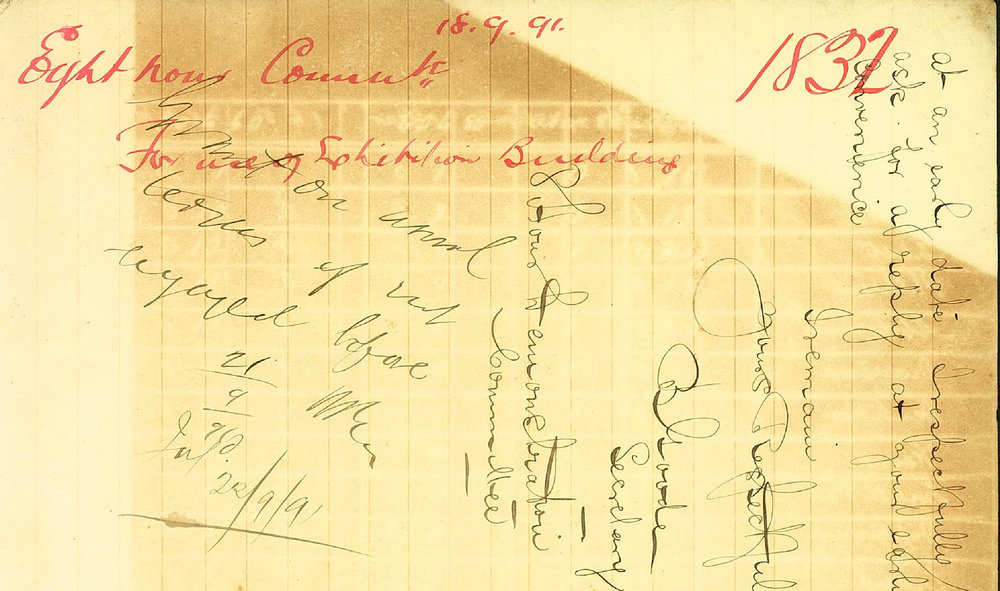 18.9.91.
Eight hour Commte
1832
For use of Exhibition Building
on usual
terms if not
engaged before
21/9
Inf
22/9/91
at an early date I respectfully
ask for a reply at your
convenience
I remain
Yours Respectful
Secretary
8 hours Demonstration
Committee